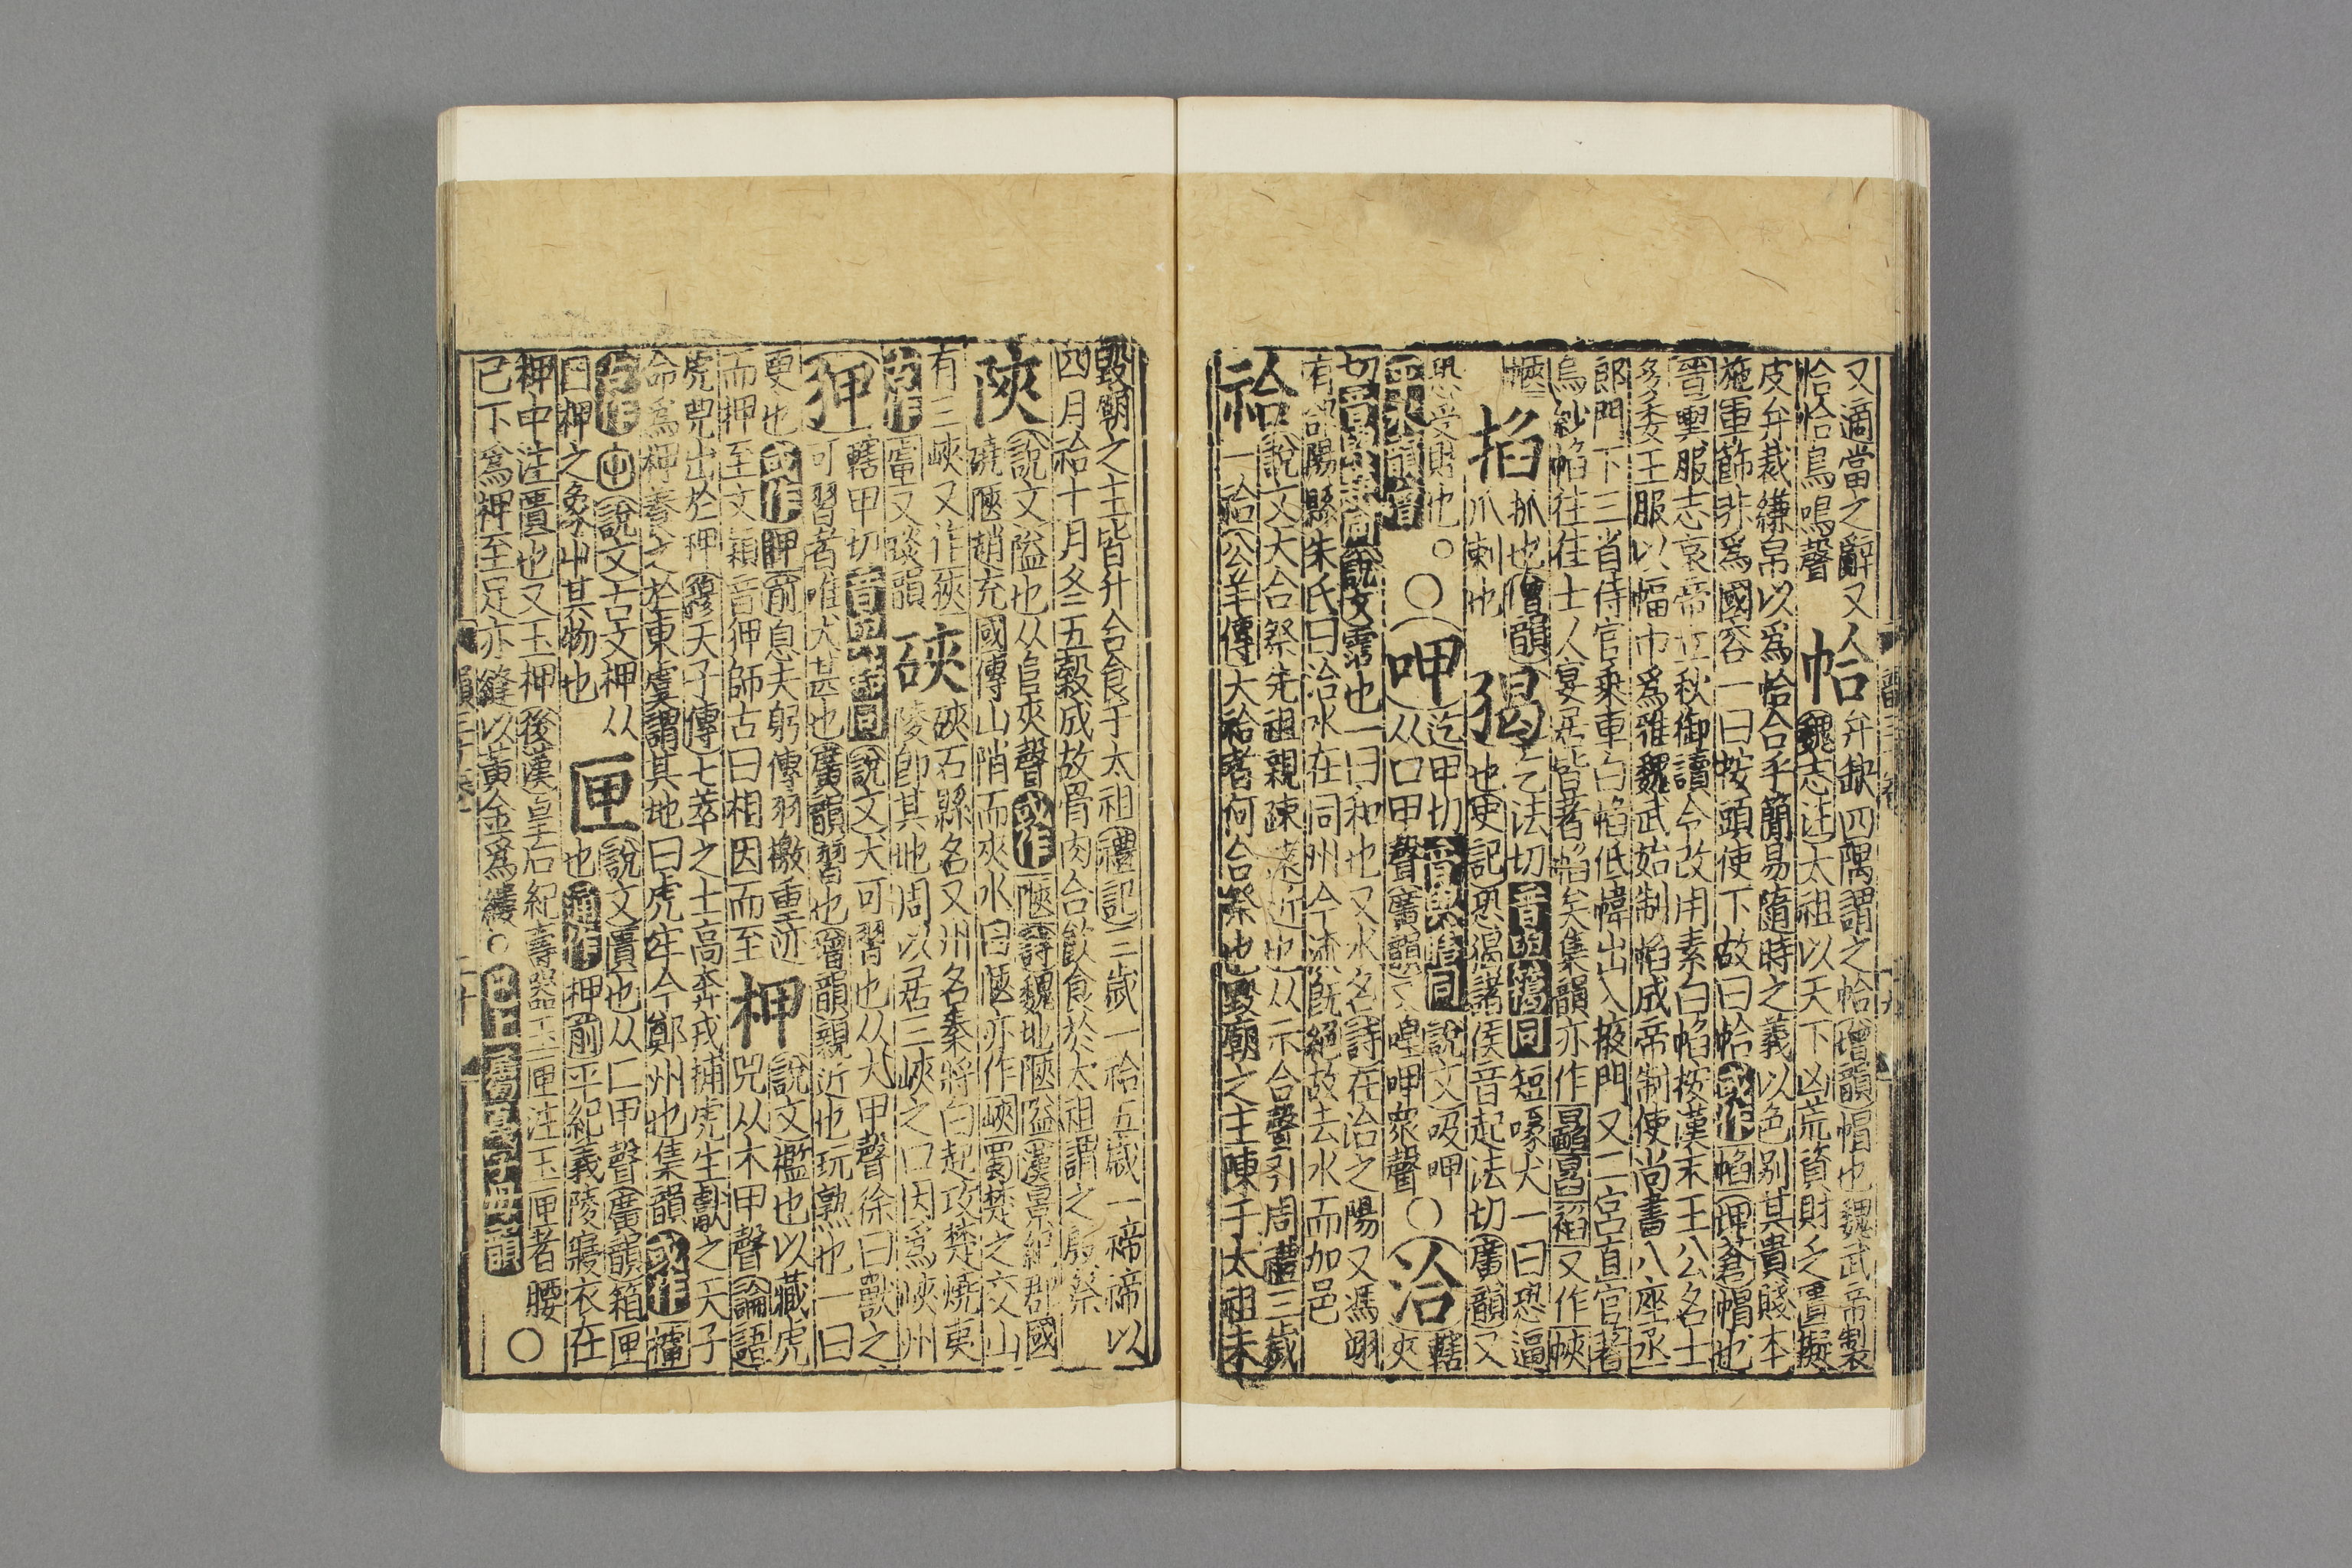 又適當之辭又
恰恰鳥鳴聲
帢
弁缺四隅謂之帢增韻帽也魏武帝製
魏志注太祖以天下凶荒資財乏匱擬
皮弁裁縑帛以爲帢合乎簡易隨時之義以色别其貴賤本
施軍飾非爲國容一曰帢頭使下故曰帢或作㡊埤蒼帽也
晉輿服志哀帝立秋御讀令改用素白㡊按漢末王公名士
多委王服以幅巾爲雅魏武始制㡊成帝制使尚書八座丞
郎門下三省侍官乘車白㡊低幃出入掖門又二宮直官著
烏紗㡊往往士人宴居皆著㡊矣集韻亦作
又作㡇
掐
抓也增韻
爪刺也
猲
乞法切音與𦞂同短喙犬一曰恐逼
也史記恐猲諸侯音起法切廣韻又
恐受財也○
○呷
迄甲切
說文吸呷
从口甲聲廣韻又喤呷衆聲
○洽
轄夾
切
說文霑也一曰和也又水名詩在洽之陽又馮翊
有郃陽縣朱氏曰洽水在同州今流旣絕故去水而加邑
祫
說文大合祭先祖親疎遠近也从示合聲引周禮三歲
一祫公羊傳大祫者何合祭也毀廟之主陳于太祖未
毀廟之主皆升合食于太祖禮記三歲一祫五歲一禘禘以
四月祫十月冬五穀成故骨肉合飲食於太祖謂之殷祭
陜
說文隘也从𨸏夾聲或作陿詩魏地陿隘漢景紀郡國
磽陿趙充國傳山陗而夾水曰陿亦作峽蜀楚之交山
有三峽又作狹
硤
硤石縣名又州名秦將白起攻楚燒夷
陵卽其地周以居三峽之口因爲峽州
霅又琰韻
狎
轄甲切
說文犬可習也从犬甲聲徐曰獸之
可習者唯犬甚也廣韻習也增韻親近也玩熟也一曰
更也或作㗇前息夫躬傳羽檄重迹
而押至文穎音狎師古曰相因而至
柙
說文檻也以藏虎
兕从木甲聲論語
虎兕出於柙穆天子傳七萃之士高奔戎捕虎生獻之天子
命爲柙養之於東虞謂其地曰虎牢今鄭州也集韻或作
說文古文柙从
曰柙之象中其物也
匣
說文匱也从匚甲聲廣韻箱匣
也通作柙前平紀義陵寢衣在
柙中注匱也又玉柙後漢皇后紀壽器玉匣注玉匣者腰
已下爲柙至足亦縫以黃金爲縷○
○